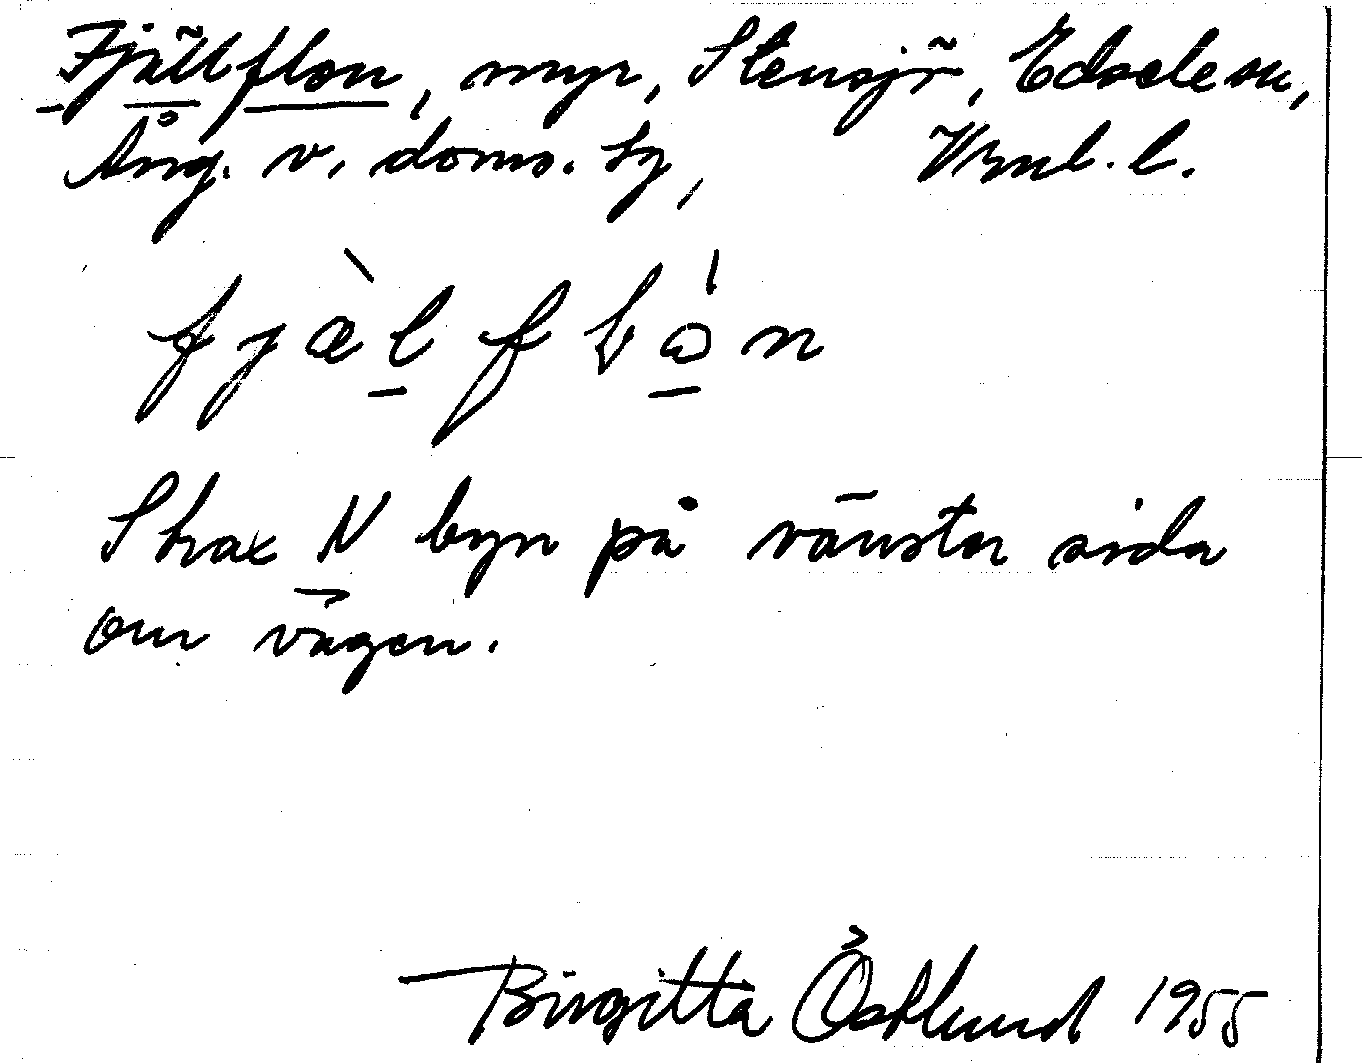 Fjällflon, myr, Stensjö, Edsele sn,
Ång. v. doms. tg, Vrnl. l.
fjælflån
Strax N byn på vänster sida
om vägen.
Birgitta Östlund 1955